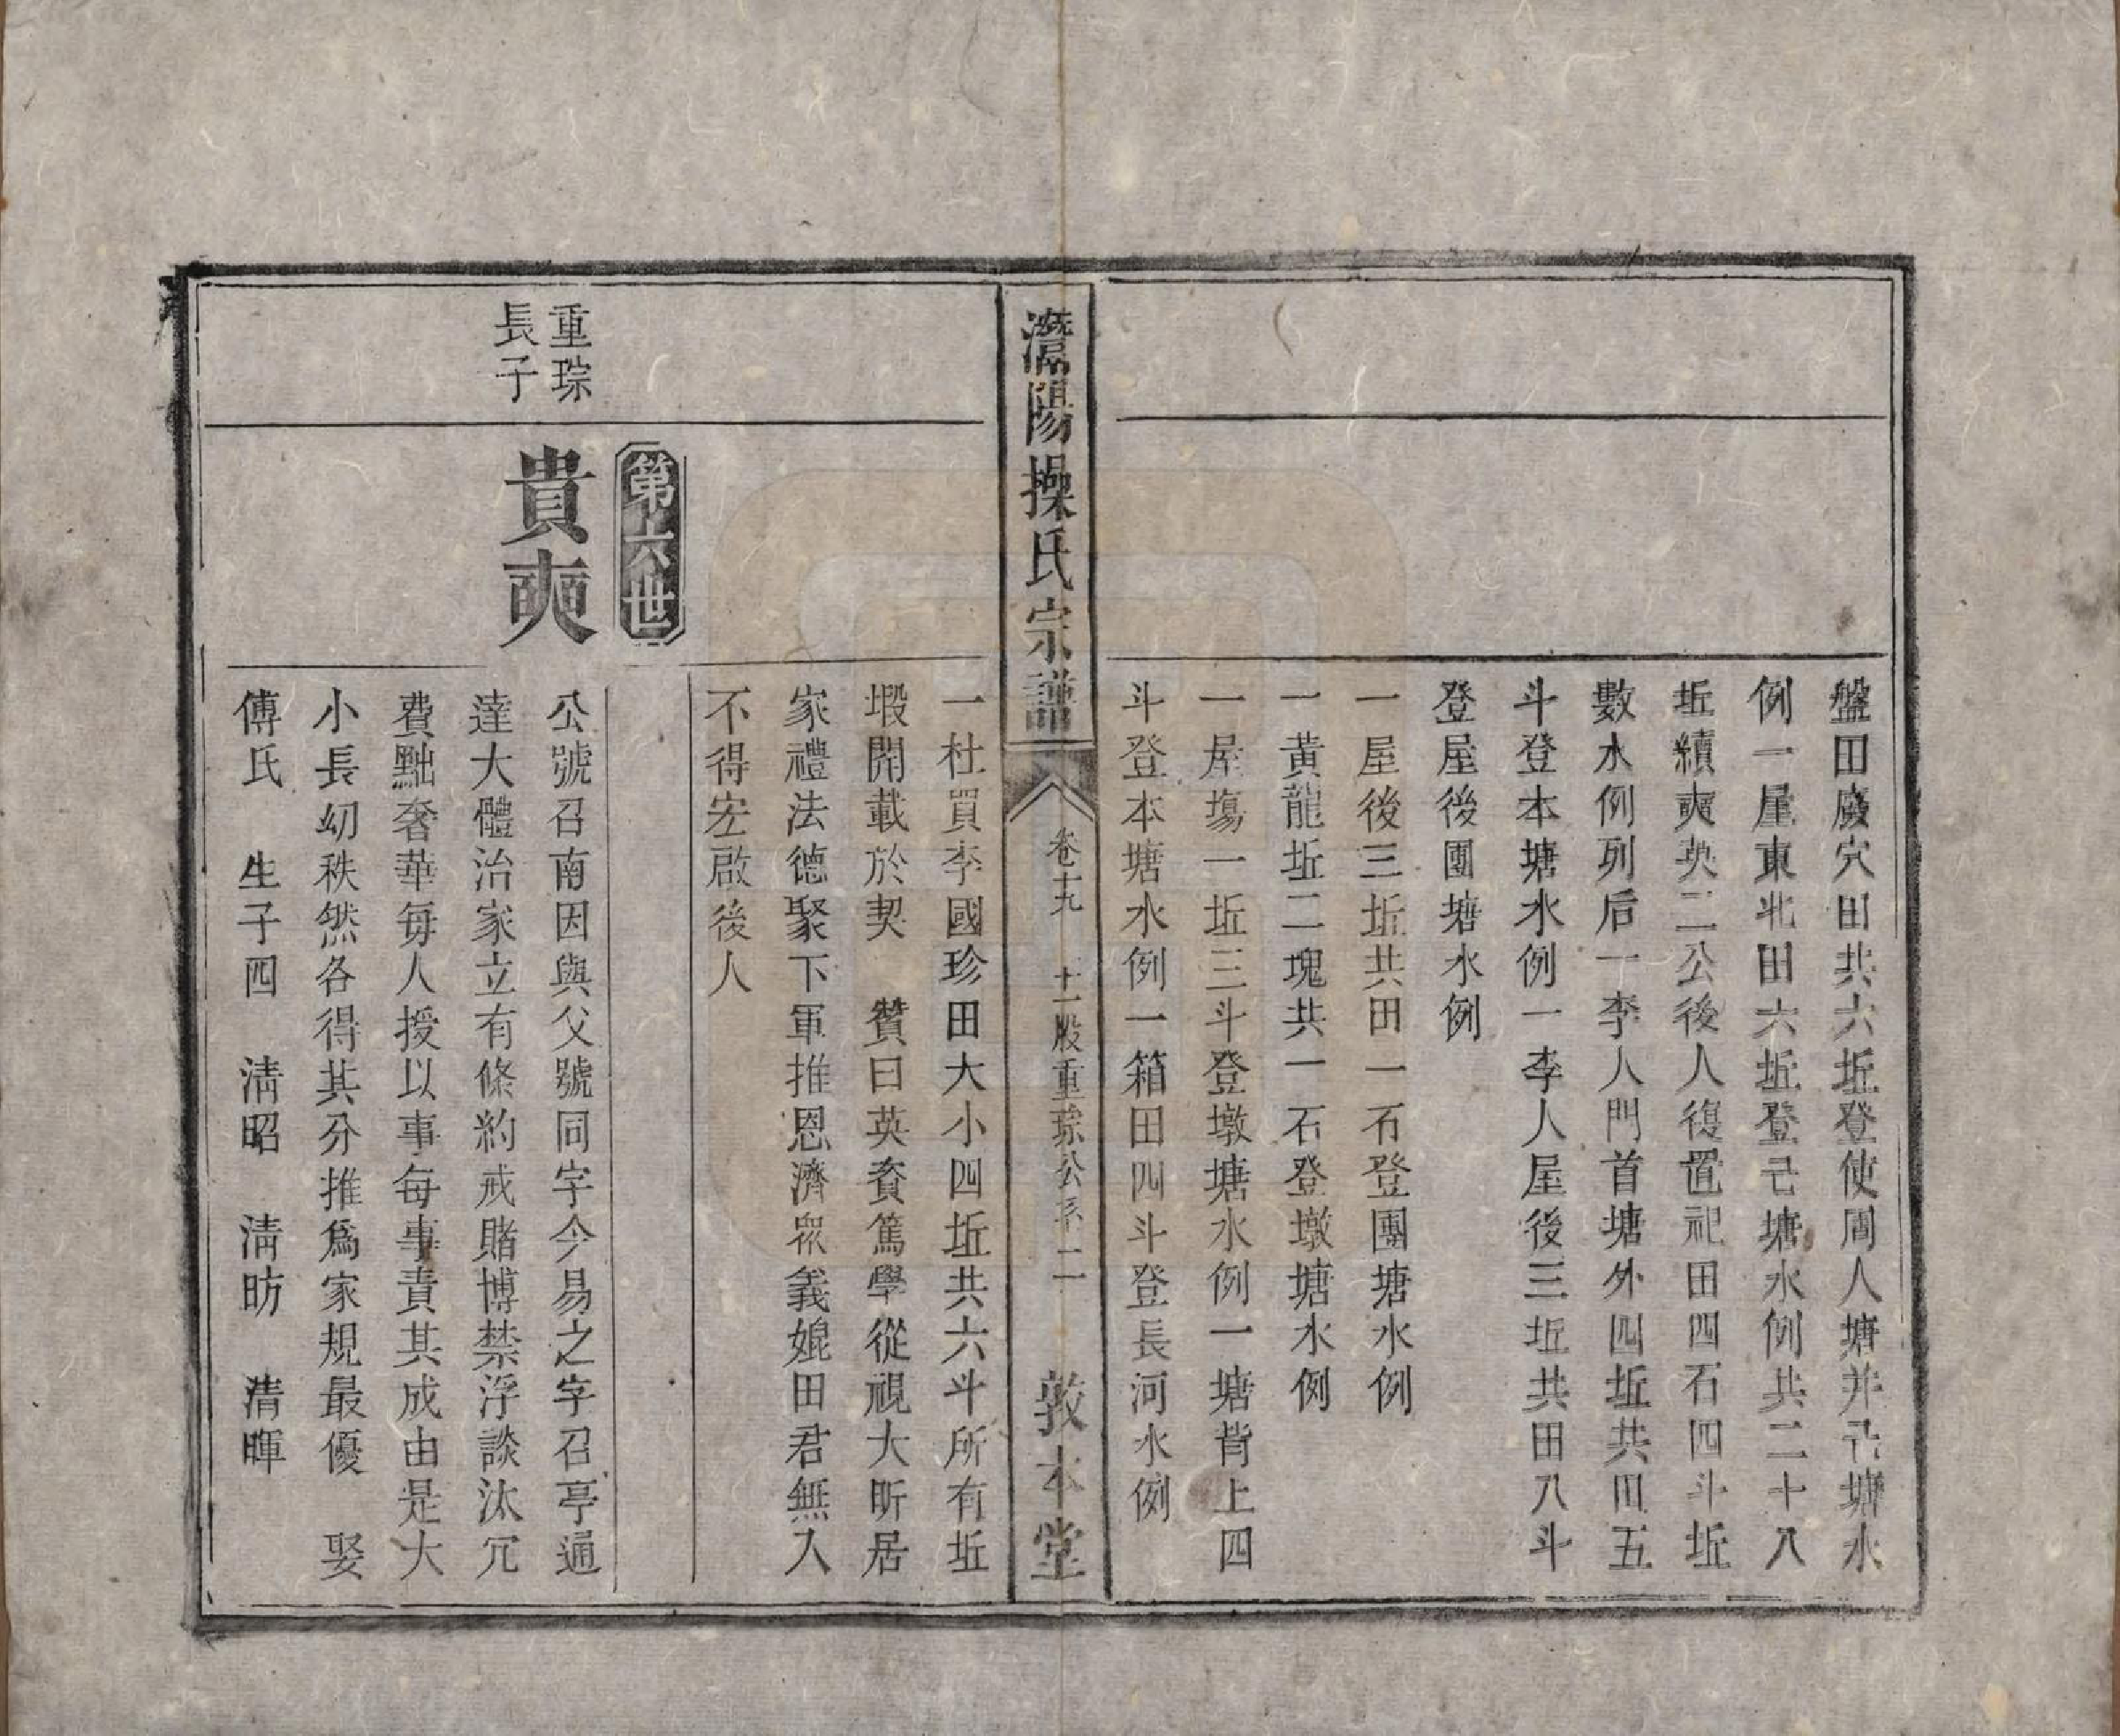 盤田廒穴田共六坵登使周人塘并己塘水
例一屋東北田六坵登己塘水例共二十八
坵續奭英二公後人復置祀田四石四斗坵
數水例列后一李人門首塘外四坵共田五
斗登本塘水例一李人屋後三坵共田八斗
登屋後團塘水例
一屋後三坵共田一石登團塘水例
一黃龍坵二塊共一石登墩塘水例
一屋塲一坵三斗登墩塘水例一塘背上四
斗登本塘水例一箱田四斗登長河水例
灊陽操氏宗譜
卷十九
十一股重琮公系二
敦本堂
一杜買李國珍田大小四坵共六斗所有坵
塅開載於契 贊曰英賚篤學從視大昕居
家禮法德聚下軍推恩濟眾義媲田君無入
不得宏啟後人
第十六世
重琮
長子
貴奭
公號召南因與父號同字今易之字召亭通
達大體治家立有條約戒賭博禁浮談汰冗
費黜奢華每人授以事每事責其成由是大
小長幼秩然各得其分推爲家規最優 娶
傅氏 生子四 淸昭 淸昉 淸暉